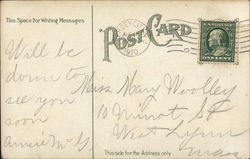 This Space For Writing Messages
POST CARD
1910
Will be
down to
see you
soon
Miss Mary Woolley
10 Minot St
West Lynn
Mass
This side for the Address only